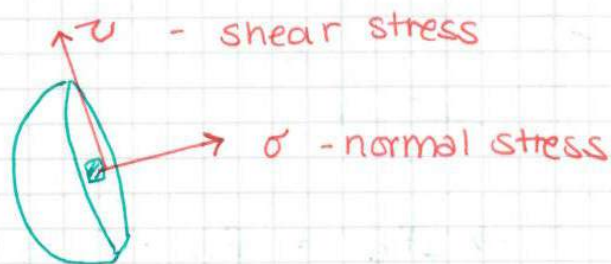 τ - shear stress
σ - normal stress